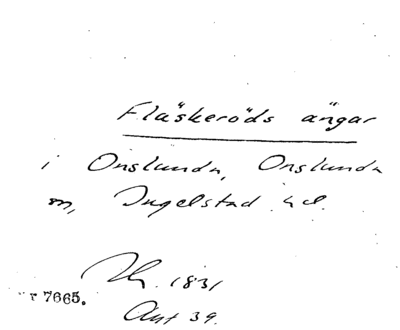 Fläskeröds ängar
i Onslunda, Onslunda
sn, Ingelstad hd.
1831
r 7665.
Akt 39.